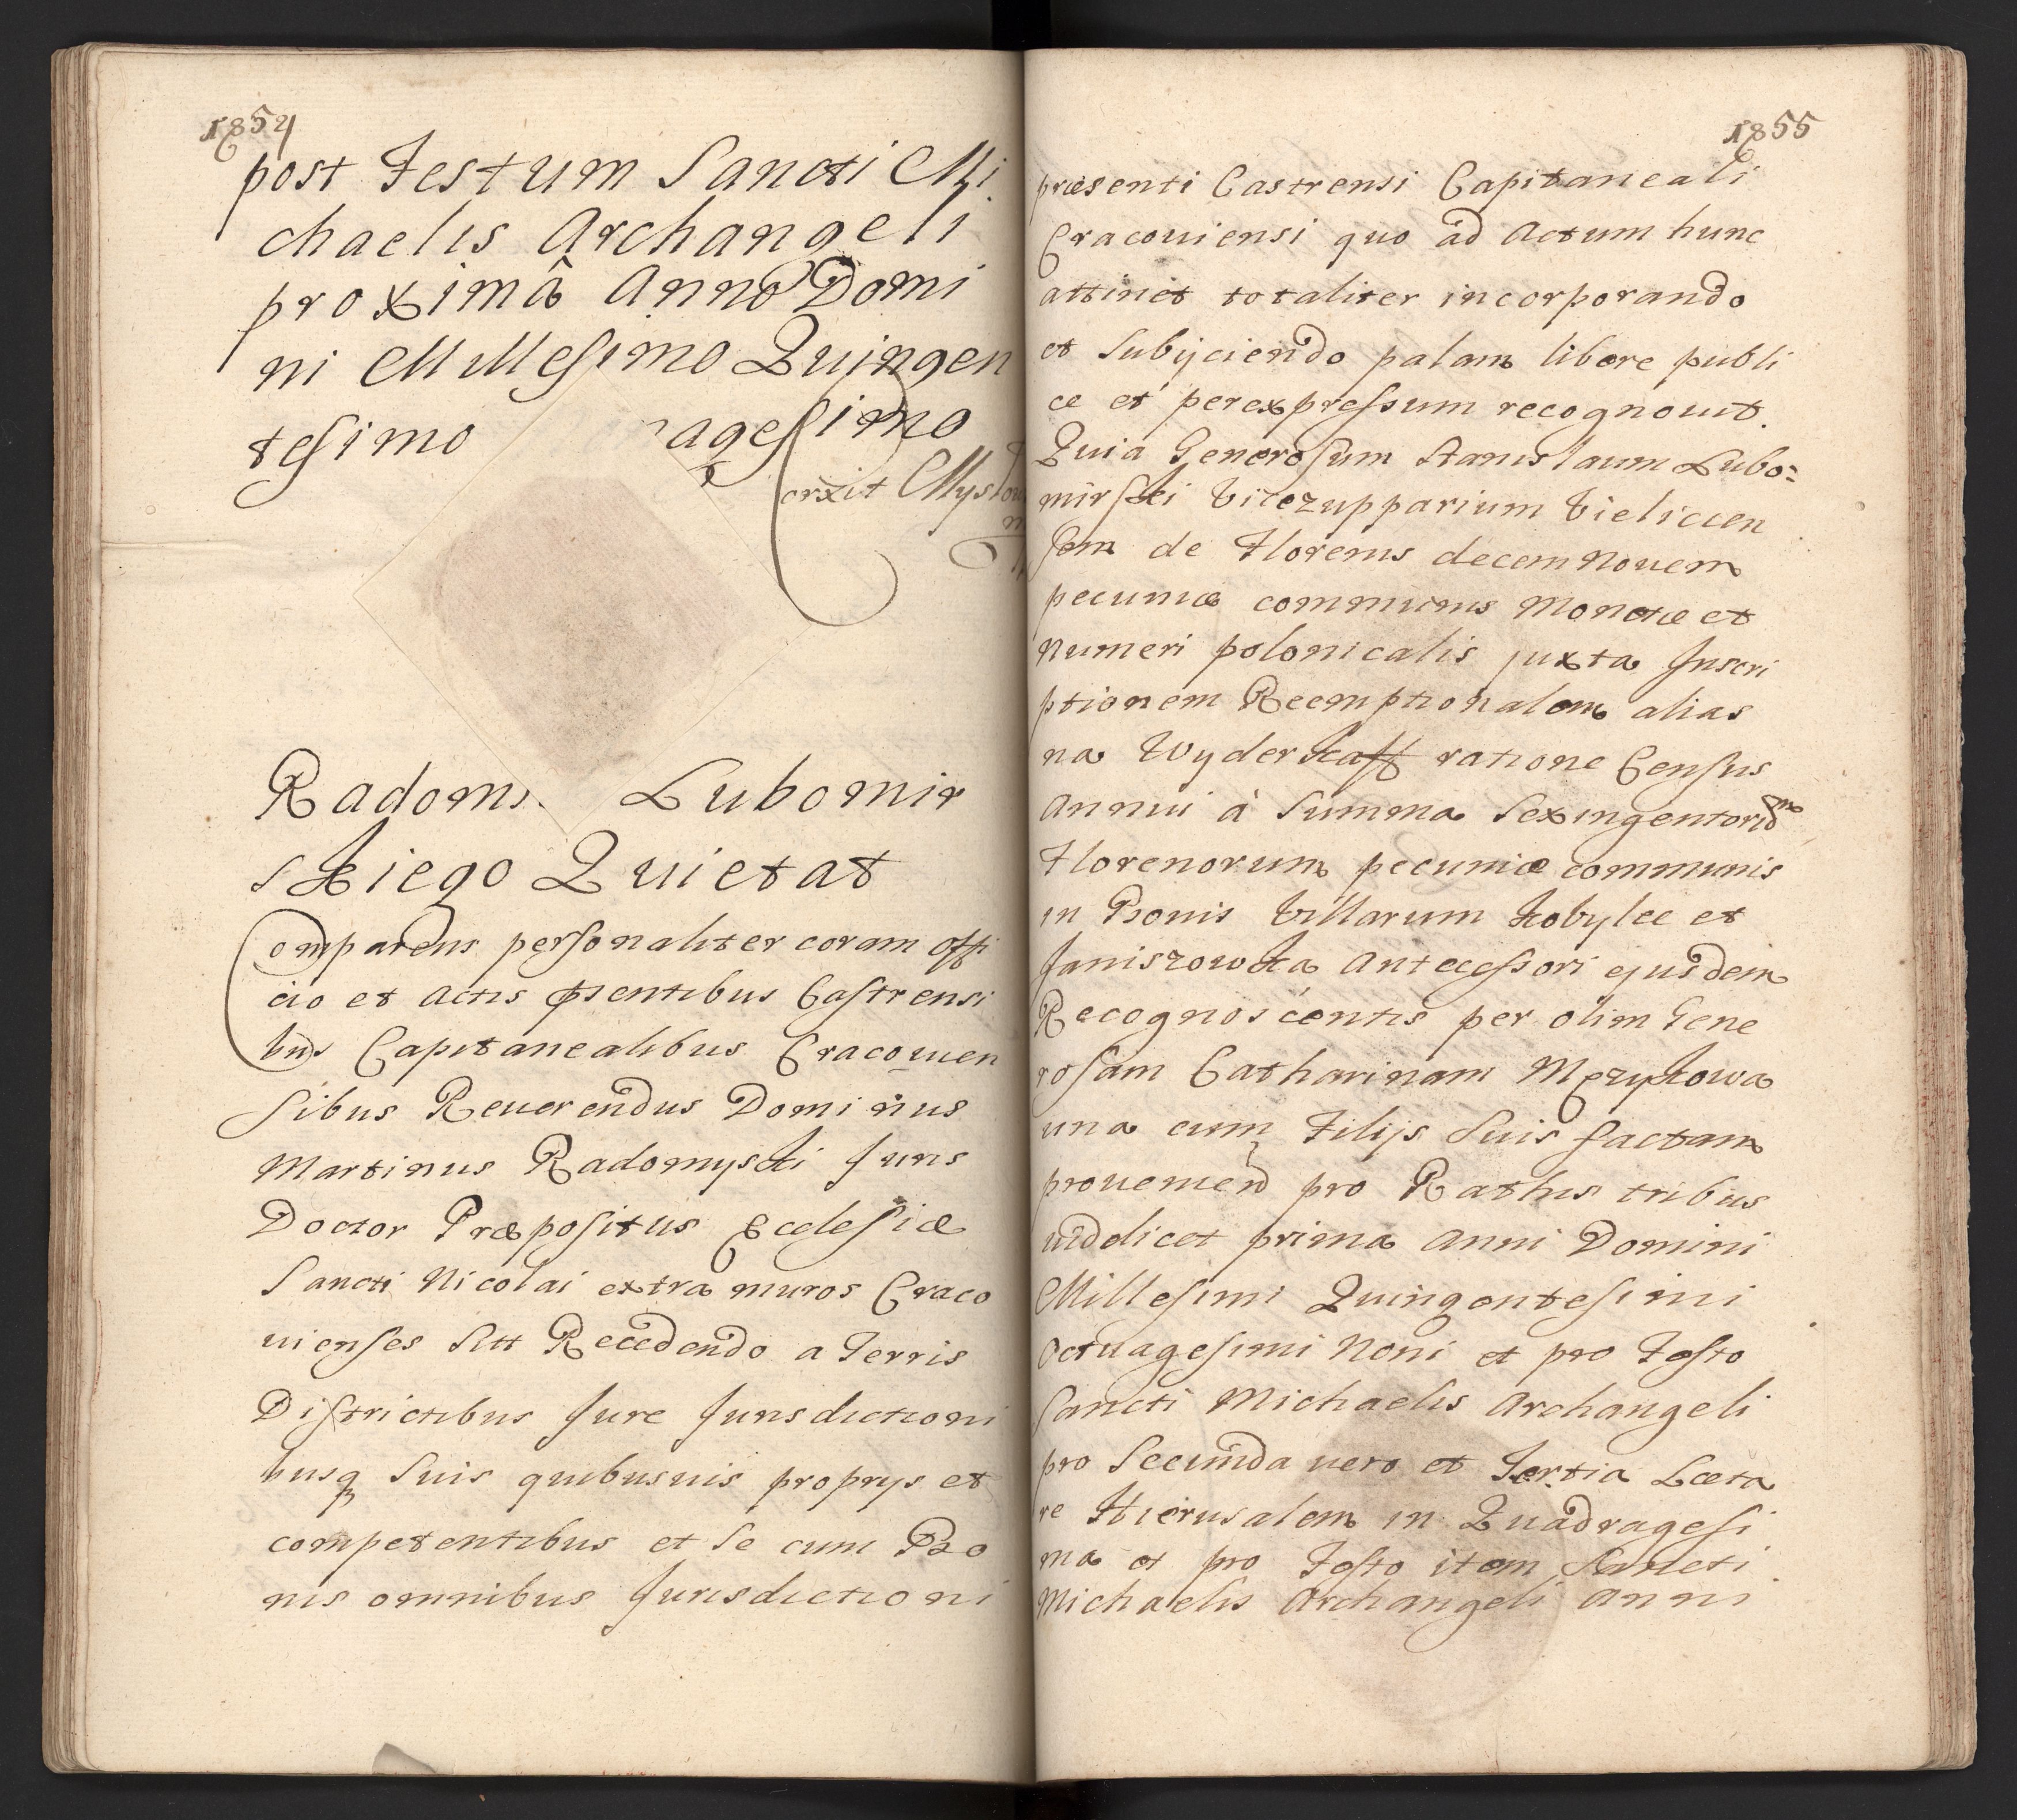 1854
post Festum Sancti Mi
chaelis Archangeli
proximâ Anno Domi
ni Millesimo Quingen
tesimo agesimo
Radoms Lubomir
skiego Quietat
Comparens personaliter coram offi
cio et actis psentibus Castrensi
bus Capitanealibus Cracouien
sibus Reuerendus Dominus
Martinus Radomyski Juris
Doctor Præpositus Ecclesiæ
Sancti Nicolai extra muros Craco
uienses Stt Recedendo a Terris
Districtibus Jure Jurisdictioni
busq suis quibusuis proprijs et
competentibus et se cum Bo
nis omnibus Jurisdictioni
1855
præsenti Castrensi Capitaneali
Cracouiensi quo ad Actum hunc
attinet totaliter incorporando
et subijciendo palam libere publi
ce et per expressum recognouit.
Quia Generosum Stanislaum Lubo=
mirski Vicezupparium Vieliccen
sem de Florenis decem Nouem
pecuniæ communis Monetæ et
Numeri polonicalis juxta Inscri
ptionem Reemptionalem alias
na Wyderkaff ratione Census
Annui à Summa Sexingentorū
Florenorum pecuniæ communis
in Bonis Villarum Kobylec et
Janiszowka Antecessori ejusdem
Recognoscentis per olim Gene
rosam Catharinam Męzykowa
una cum Filijs Suis factam
prouenien pro Rathis tribus
uidelicet prima Anni Domini
Millesimi Quingentesimi
Octuagesimi Noni et pro Festo
Sancti Michaelis Archangeli
pro Secunda uero et Tertia Læta
re Hierusalem in Quadragesi
ma et pro Festo item Sancti
Michaelis Archangeli Anni